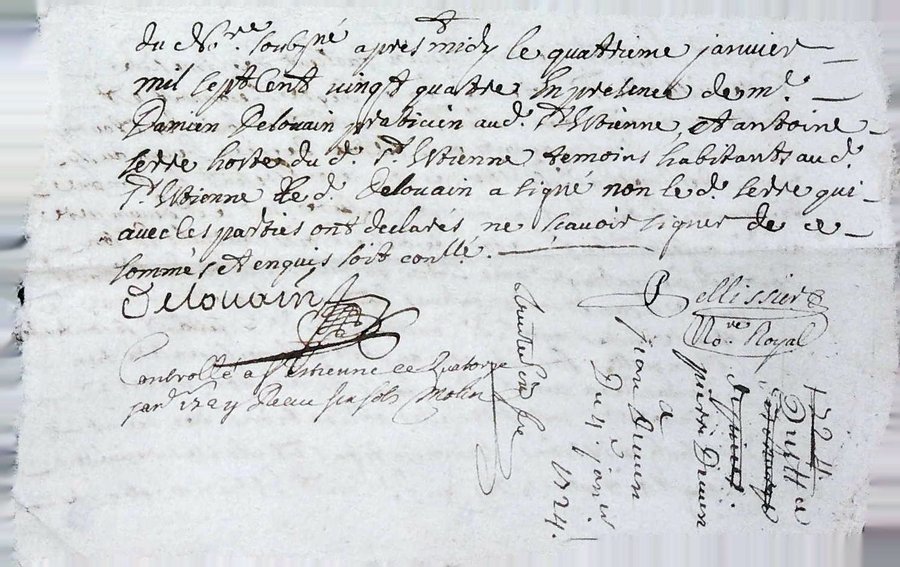 du No.re soubsné apres midy le quatrieme janvier
mil sept cent vingt quatre En presence de m.e
Damien Delouain praticien aud. St Etienne, et antoine
serre hoste du d. St Etienne temoins habitants aud.
St Etienne led. Delouain a signé non le d. serre qui
avec les parties ont declarés ne scavoir signer de ce
sommés et enquis soit conllé.
Delouain
Pellissier
No.re Royal
Controllé a St Etienne ce Quatorze
janv. 1724 Reçu six sols Molin
1724
Quitt.e
pierre
a
jean
Du 4 janv.r
1724.